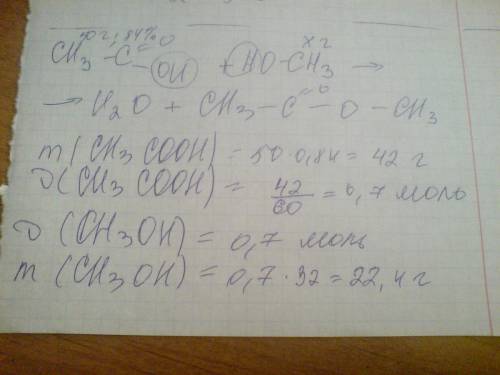 50 г, 84% x г
CH₃ - C (=O) - OH + HO - CH₃ →
→ H₂O + CH₃ - C (=O) - O - CH₃
m (CH₃COOH) = 50 · 0,84 = 42 г
ν (CH₃COOH) = 42/60 = 0,7 моль
ν (CH₃OH) = 0,7 моль
m (CH₃OH) = 0,7 · 32 = 22,4 г